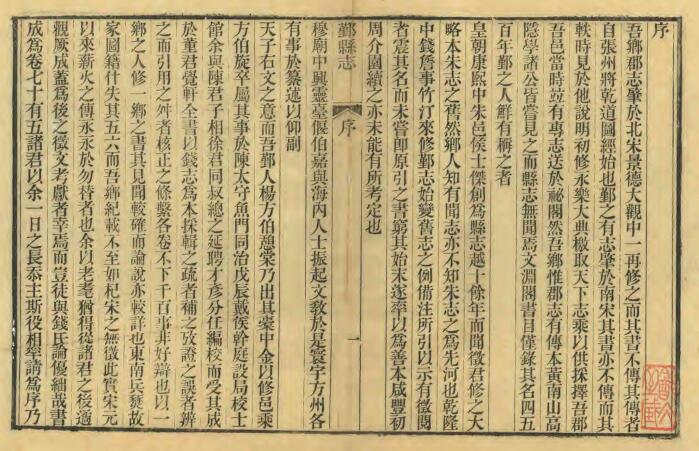 序
吾鄉郡志肇於北宋景德大觀中一再修之而其書不傳其傳者
自張州將乾道圖經始也鄞之有志肇於南宋其書亦不傳而其
軼時見於他說明初修永樂大典檄取天下志乘以供採擇吾郡
吾邑當時竝有專志送於祕閣然吾鄉惟郡志有傳本黃南山高
隱學諸公皆嘗見之而縣志無聞焉文淵閣書目僅錄其名四五
百年鄞之人鮮有稱之者
皇朝康熙中朱邑侯士傑創為縣志越十餘年而聞徵君修之大
略本朱志之舊然鄉人知有聞志亦不知朱志之為先河也乾隆
中錢詹事竹汀來修鄞志始變舊志之例備注所引以示有徵閱
者震其名而未嘗卽原引之書窮其始末遂率以為善本咸豐初
周介園續之亦未能有所考定也
鄞縣志
序
一
穆廟中興靈臺偃伯嘉與海內人士振起文敎於是寰宇方州各
有事於纂述以仰副
天子右文之意而吾鄞人楊方伯憩棠乃出其橐中金以修邑乘
方伯旋卒屬其事於陳太守魚門同治戊辰戴侯幹庭設局校士
館余與陳君子相徐君同叔總之延聘才彥分任編校而受其成
於董君覺軒全書以錢志為本採輯之疏者補之攷證之誤者辨
之而引用之舛者核正之條繫各卷不下千百事非好辯也以一
鄉之人修一鄉之書其見聞較確而論說亦較詳也東南兵燹故
家圖籍什失其五六而吾鄉紀載不至如杞宋之無徵此實宋元
以來薪火之傳永永於勿替者也余以老耄猶得從諸君之後適
觀厥成蓋為後之徵文考獻者幸焉而豈徒與錢氏論優絀哉書
成為卷七十有五諸君以余一日之長忝主斯役相率請為序乃